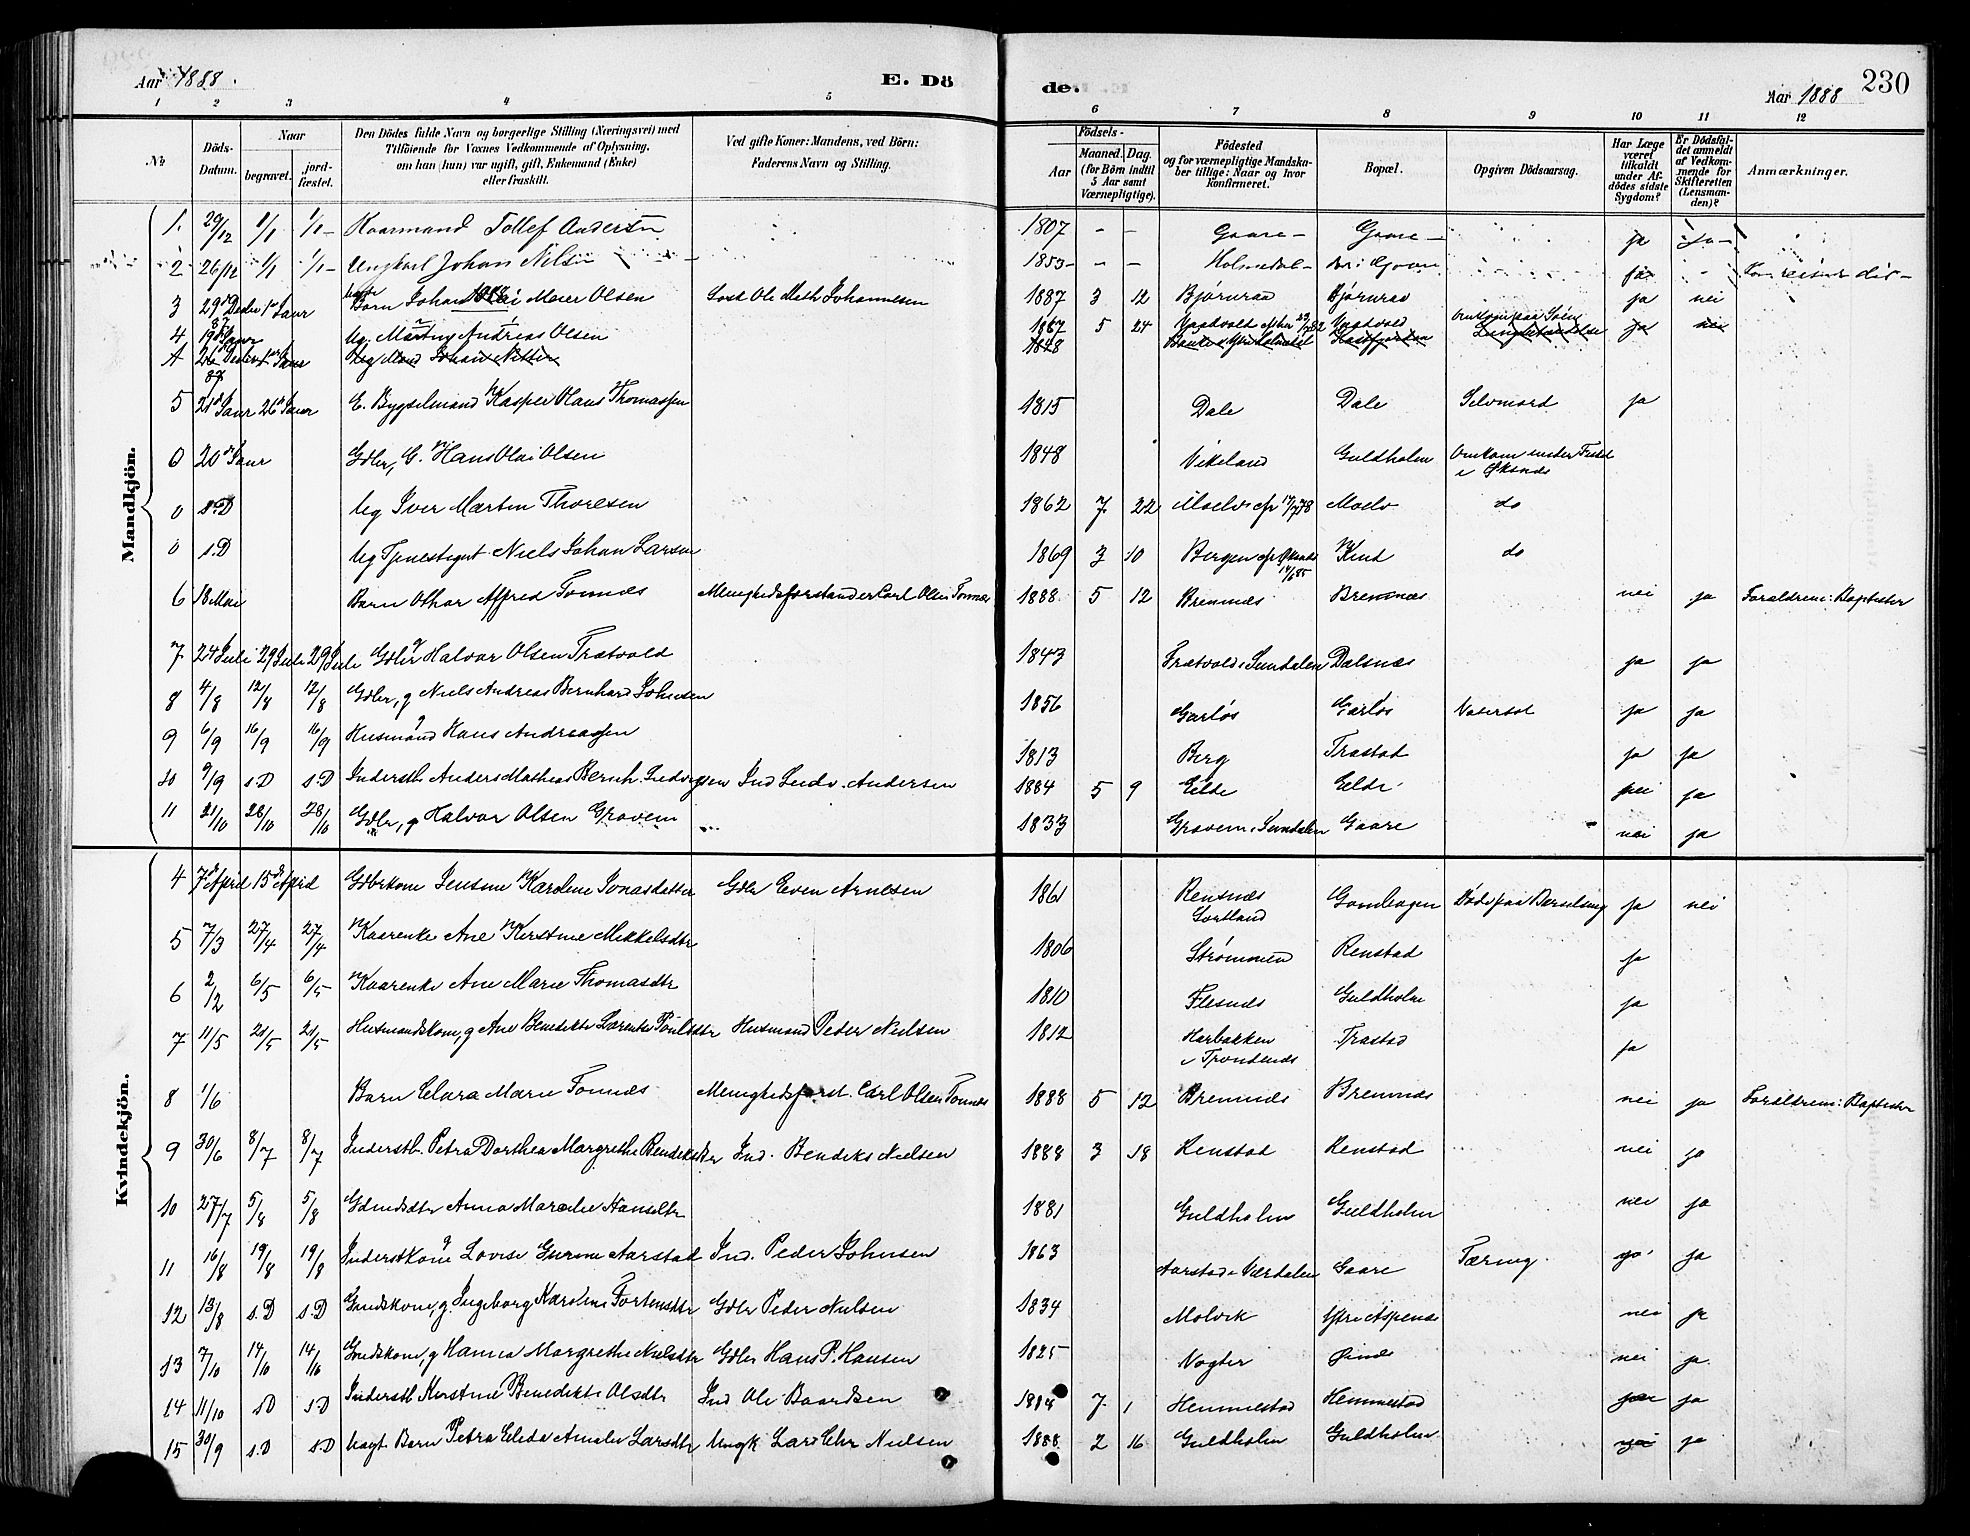 Aar 1888.
E. Döde.
Aar 1888
230
1 2 3 4 5 6 7 8 9 10 11 12
No
Döds-Datum.
Naar
begravet.
jordfæstet.
Den Dödes fulde Navn og borgerlige Stilling (Næringsvei) med
Tilföiende for Voxnes Vedkommende af Oplysning,
om han (hun) var ugift, gift, Enkemand (Enke)
eller fraskilt.
Ved gifte Koner: Mandens, ved Börn:
Faderens Navn og Stilling.
Födsels-
Aar
Maaned. Dag.
(for Börn indtil
5 Aar samt
Værnepligtige).
Födested
og for værnepligtige Mandskaber tillige: Naar og hvor
konfirmeret.
Bopæl.
Opgiven Dödsaarsag.
Har Læge
været
tilkaldt
under Afdödes sidste
Sygdom?
Er Dödsfaldet anmeldt
af Vedkommende for
Skifteretten
(Lensmanden)?
Anmærkninger.
Mandkjön.
1. 29/12 1/1 1/1 Kaarmand Tollef Andersen 1807 - - Gaare Gaare ja
2 26/12 1/1 1/1 Ungkarl Johan Nilsen 1853 - - Holmedal ja
3 29de Decbr 1ste Januar Barn Johan Meier Olsen Ole Math. Johannesen 1887 3 12 Bjørnraa Bjørnraa ja nei
4 19de Januar Ug. Andreas Olsen 1867 5 24
21de Januar 26de Januar
5 E. Bygselmand Kasper Hans Thomassen 1815 Dale Dale Selvmord ja
0 20de Januar Gdbr, G. Hans Olai Olsen 1848 Vikeland Guldholm Omkom under Fiskeri i Øksnæs
0 s.D Ug Iver Martin Thoresen 1862 7 22 Moelv Moelv do
0 s.D Ug Tjenestegut Niels Johan Larsen 1869 3 10 Bergen do
6 18 Mai Barn Othar Alfred Tonnæs Menighedsforstander Carl Olsen Tonnæs 1888 5 12 Bremnæs Bremnæs nei ja Forældrene: Baptister
7 24 Juli 29 Juli 29 Juli Gdbr g Halvor Olsen Trætvold 1843 Trætvold i Sundalen Dalsnæs ja ja
8 4/8 12/8 12/8 Gdbr, g Niels Andreas Bernhard Johnsen 1856 Garløs Garløs Vatersot ja ja
9 6/9 16/9 16/9 Husmand g Hans Andreassen 1813 Berg Trastad ja ja
10 9/9 s.D s.D Inderstb. Anders Mathias Bernh. Ludvigsen Ind Ludv. Andersen 1884 5 9 Eilde Eilde nei ja
11 21/10 28/10 28/10 Gdbr, g Halvor Olsen Gravem 1833 Gravem i Sundalen Gaare nei ja
Kvindekjön.
4 7de April 15de April Gdbrkone Jensine Karoline Jonasdatter Gdbr Even Arntsen 1861 Rensnæs Sortland Døde paa Barselseng ja nei
5 7/3 27/4 27/4 Kaarenke Ane Kirstine Mikkelsdtr 1806 Strømmen Renstad ja
6 2/2 6/5 6/5 Kaarenke Ane Marie Thomasdtr 1810 Flesnæs Guldholm ja
7 11/5 21/5 21/5 Husmandskone, g Ane Benedikte Lorentse Poulsdtr Husmand Peder Nielsen 1812 Harbakken i Trondenæs Trastad ja
8 1/6 Barn Clara Marie Tonnæs Menighedsforst. Carl Olsen Tonnæs 1888 5 12 Bremnæs Bremnæs nei ja Forældrene: Baptister
9 30/6 8/7 8/7 Inderstb. Petra Dorthea Margrethe Bendiksdtr Ind. Bendiks Nielsen 1888 3 18 Renstad Renstad nei ja
10 27/7 5/8 5/8 Gdmdsdtr Anna Marselie Hansdtr 1881 Guldholm Guldholm nei ja
11 16/8 19/8 19/8 Inderstkone g Lovise Gurine Aarstad Ind. Peder Johnsen 1863 Aarstad i Værdalen Gaare Tæring. ja ja
12 13/8 s.D s.D Gmdskone, g. Ingeborg Karoline Tortensdtr Gdbr Peder Nielsen 1834 Molvik Ytre Aspenæs nei ja
13 7/10 14/10 14/10 Gmdskone, g Hanna Margrethe Nielsdtr Gdbr Hans P. Hansen 1825 Vogter nei ja
14 11/10 s.D s.D Inderstb Kirstine Benedikte Olsdtr Ind Ole Baardsen 7 1 Hemmestad Hemmestad ja
15 30/9 s.D s.D Uægt. Barn Petra Elida Amalie Larsdtr Ungk Lars Chr Nielsen 1888 2 16 Guldholm Guldholm nei ja